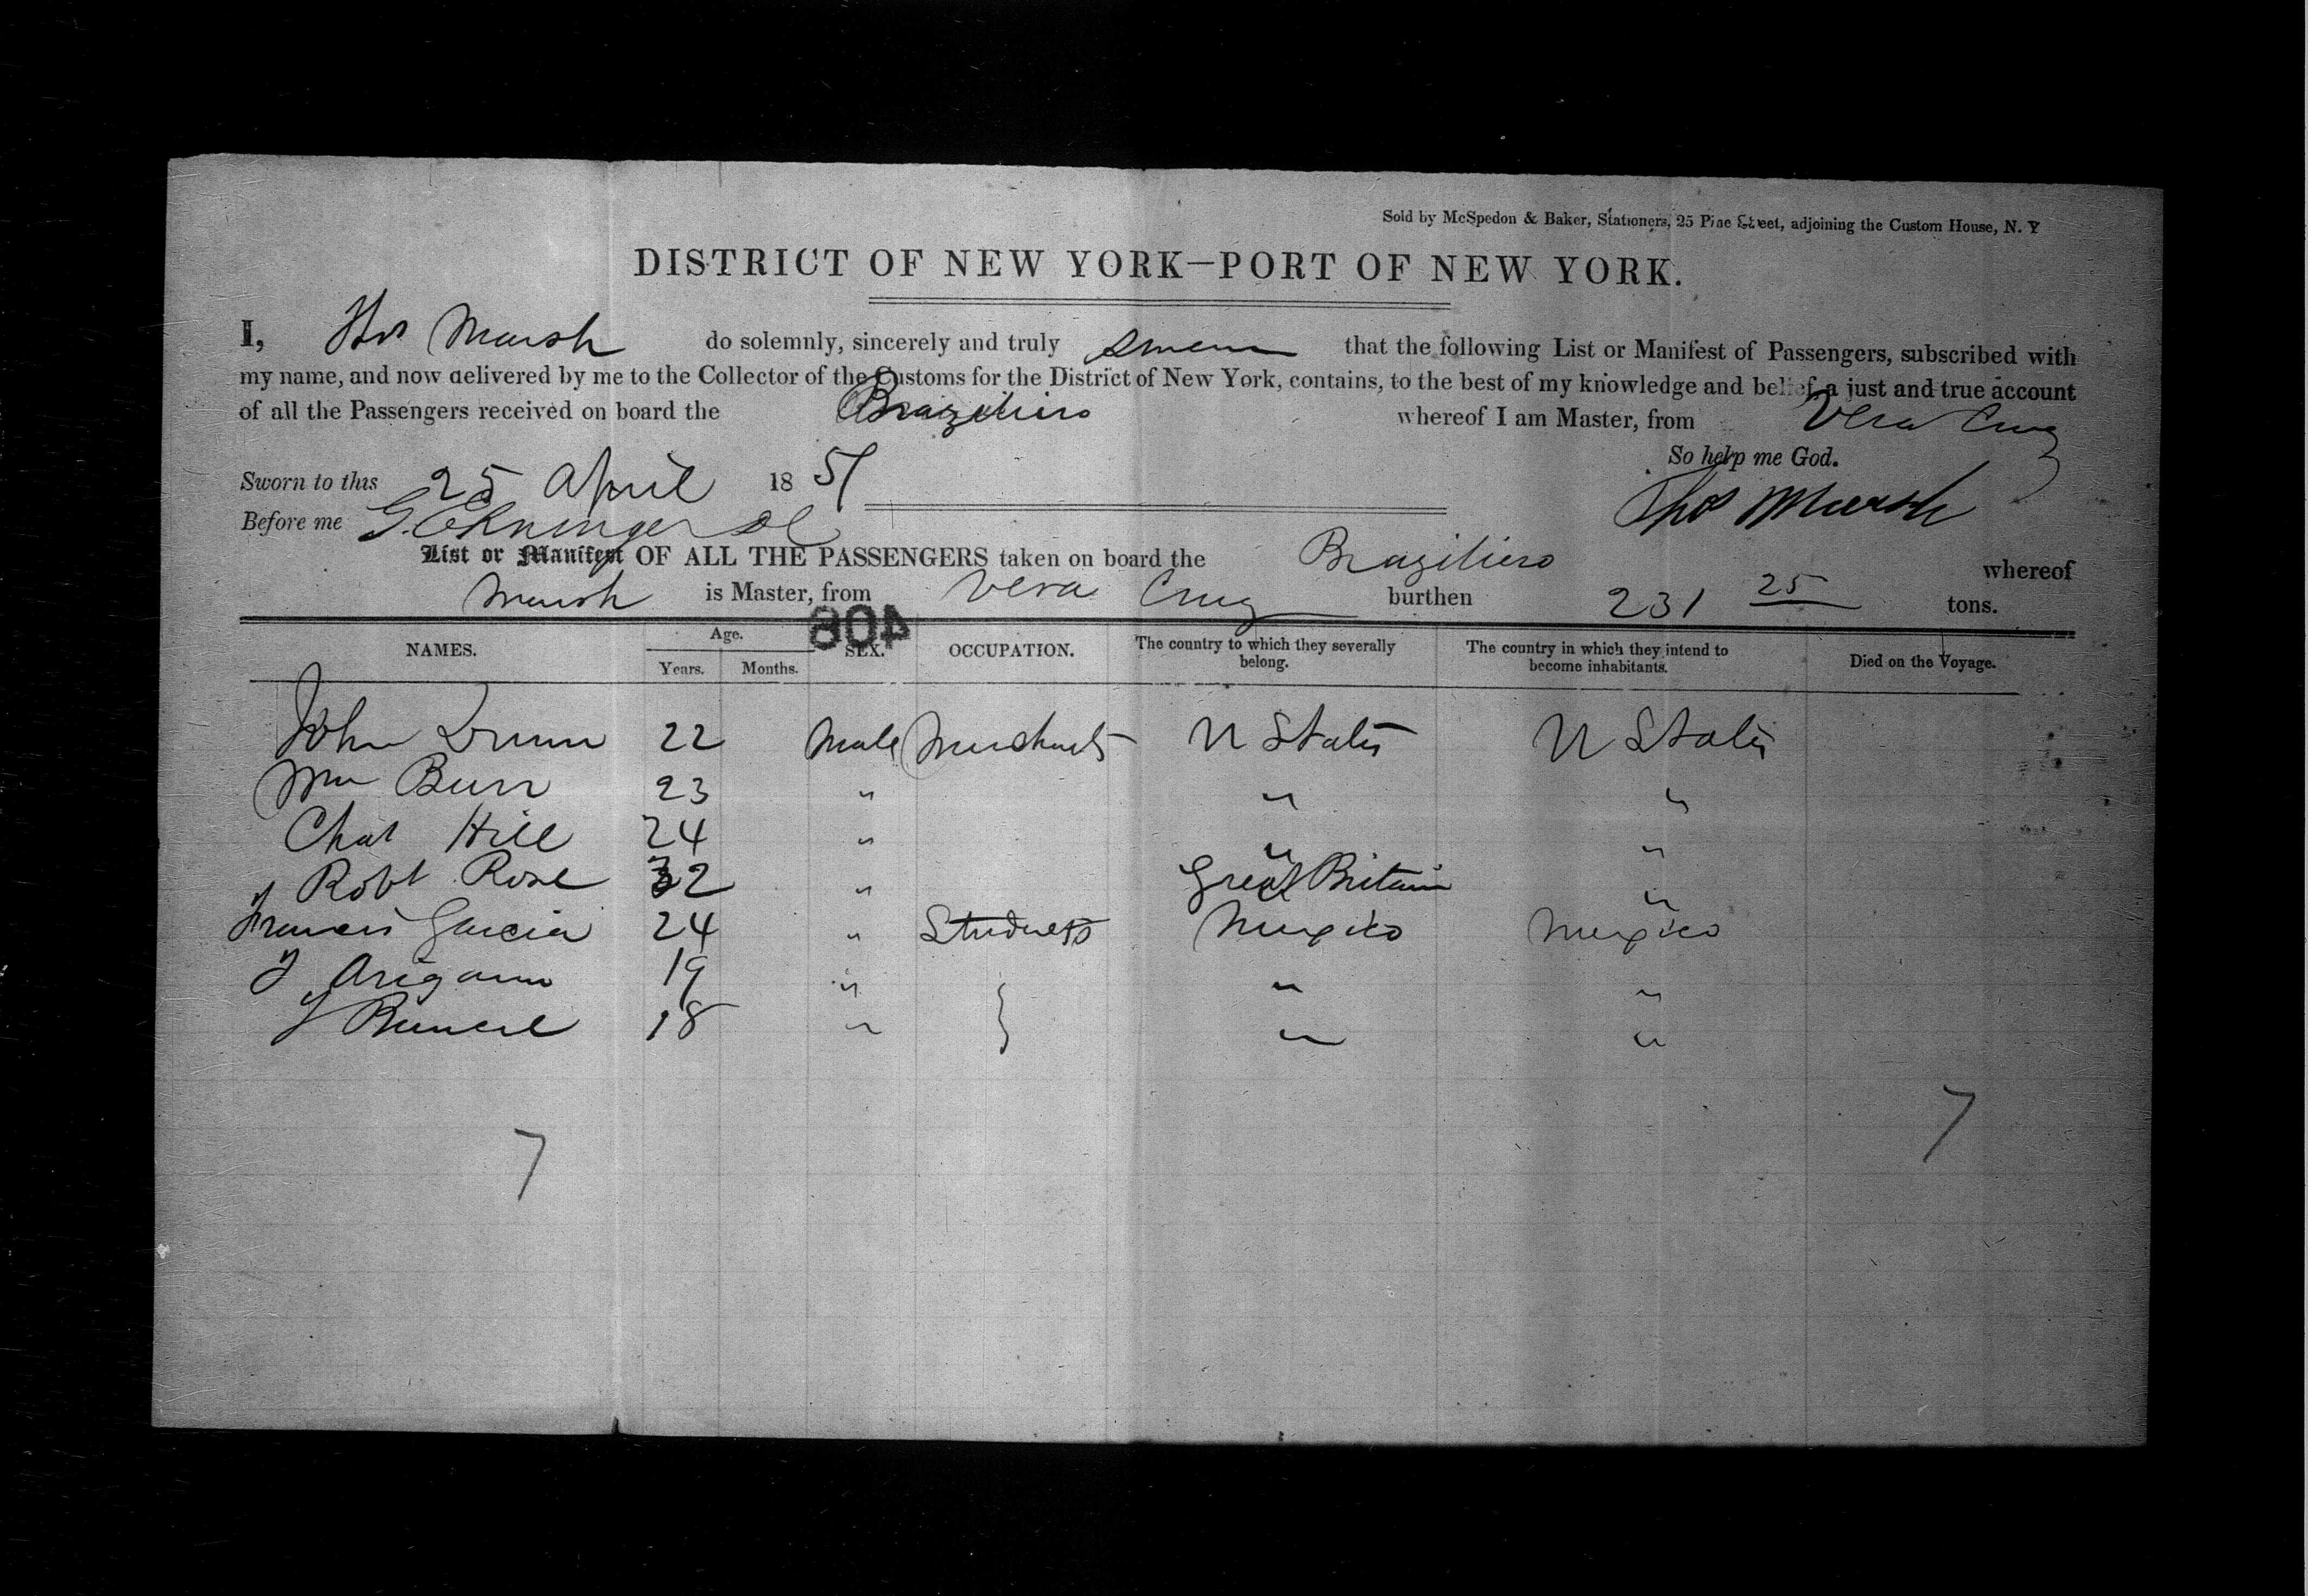 Sold by McSpedon & Baker, Stationers, 25 Pine Street, adjoining the Custom House, N. Y
DISTRICT OF NEW YORK—PORT OF NEW YORK.
I, Thos Marsh do solemnly, sincerely and truly swear that the following List or Manifest of Passengers, subscribed with
my name, and now delivered by me to the Collector of the Customs for the District of New York, contains, to the best of my knowledge and belief, a just and true account
of all the Passengers received on board the Braziliero whereof I am Master, from Vera Cruz
So help me God.
Sworn to this 25 April 1851
Thos Marsh
Before me
List or Manifest OF ALL THE PASSENGERS taken on board the Braziliero whereof
Marsh is Master, from Vera Cruz burthen 231 25 tons.
408
NAMES. Age. Years. Months. SEX. OCCUPATION. The country to which they severally belong. The country in which they intend to become inhabitants. Died on the Voyage.
John Dunn 22 Male Merchants U States U States
Wm Burr 23 " " "
Chas Hill 24 " " "
Robt Rose 32 " Great Britain "
Francis Garcia 24 " Students Mexico Mexico
J 19 " " "
J 18 " " "
7 7